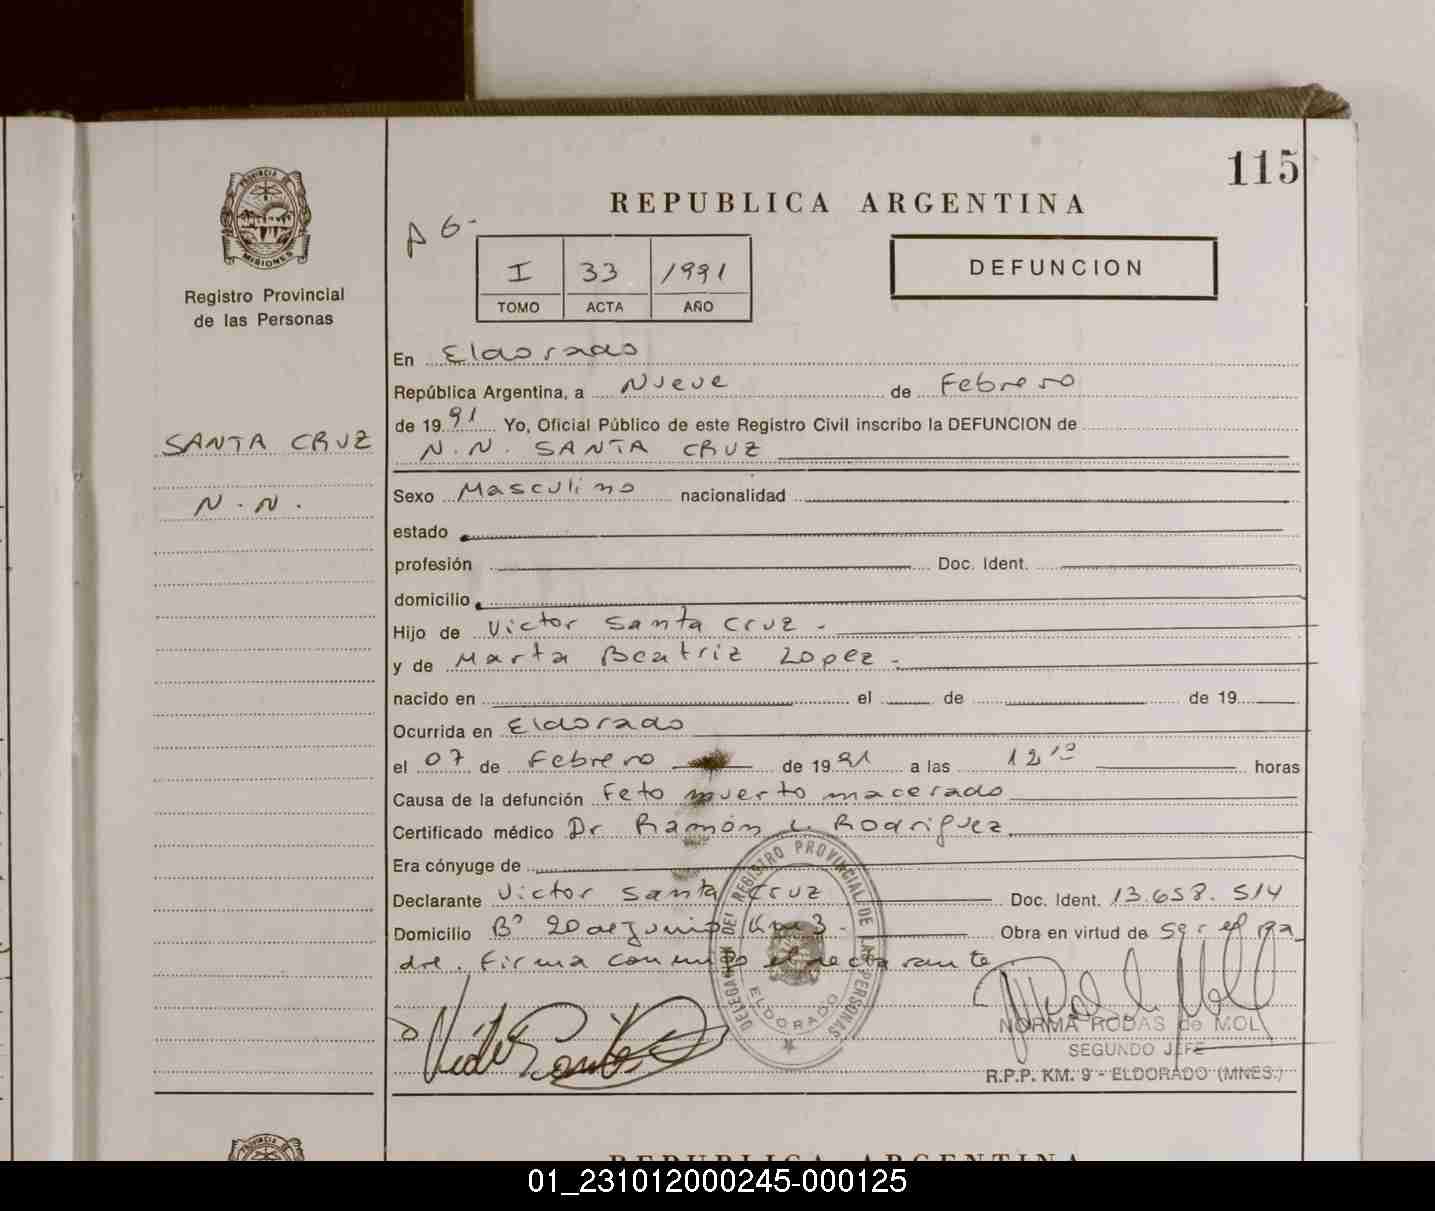 115
REPUBLICA ARGENTINA
PROVINCIA DE
MISIONES
Registro Provincial
de las Personas
I 33 1991
TOMO ACTA AÑO
DEFUNCION
En Eldorado
República Argentina, a Nueve de Febrero
de 1991 Yo, Oficial Público de este Registro Civil inscribo la DEFUNCION de
SANTA CRUZ
N.N.
N.N. SANTA CRUZ
Sexo Masculino nacionalidad
estado
profesión Doc. Ident.
domicilio
Hijo de Victor Santa Cruz -
y de Marta Beatriz Lopez -
nacido en el de de 19
Ocurrida en Eldorado
el 07 de Febrero de 1991 a las 12 10 horas
Causa de la defunción Feto muerto macerado
Certificado médico Dr Ramón L. Rodriguez
Era cónyuge de
Declarante Victor Santa Cruz Doc. Ident. 13.658.514
Domicilio Bº 20 de Junio Km 3 - Obra en virtud de ser el pa_
dre. Firma conmigo el declarante
DELEGACION DEL REGISTRO PROVINCIAL DE LAS PERSONAS
ELDORADO
NORMA RODAS de MOL
SEGUNDO JEFE
R.P.P. KM. 9 - ELDORADO (MNES.)
PROVINCIA DE
REPUBLICA ARGENTINA
01_231012000245-000125